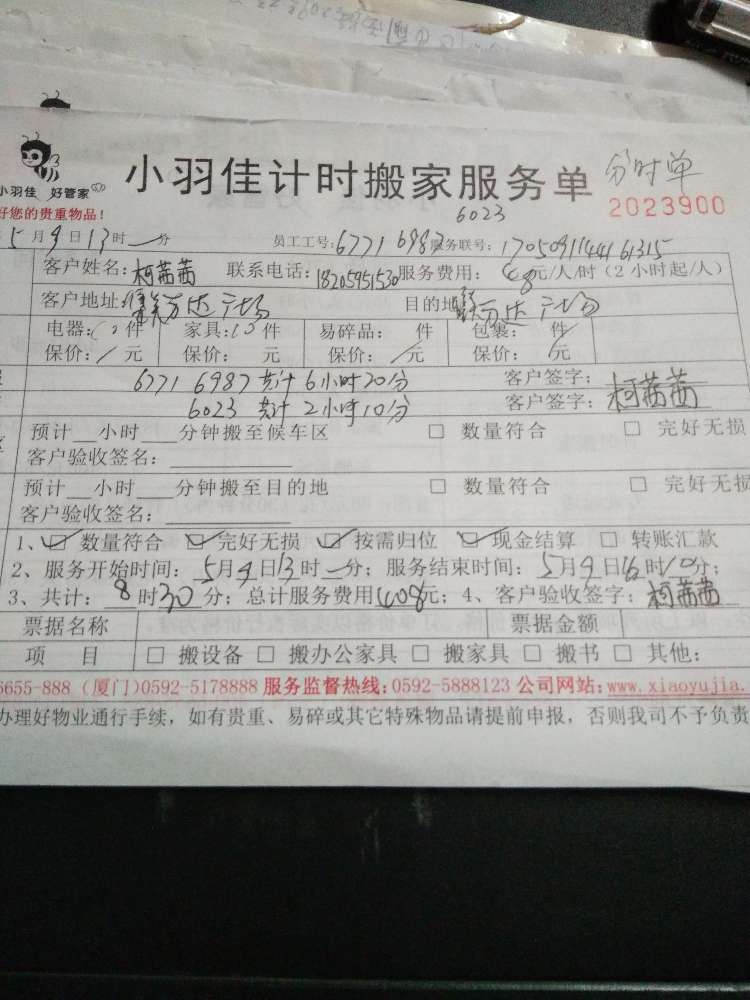 小羽佳 好管家
小羽佳计时搬家服务单 分时单
好您的贵重物品！
6023
2023900
5月9日13时一分 员工工号：6771 6987 服务联号：
客户姓名：柯茜茜 联系电话：18205951530 服务费用：48元/人/时（2小时起/人）
客户地址：万达广场 目的地：万达广场
电器： 件 家具： 件 易碎品： 件 包装： 件
保价：/元 保价： 元 保价：/元 保价：/元
6771 6987 共计6小时20分 客户签字：
6023 共计2小时10分 客户签字：柯茜茜
预计__小时___分钟搬至候车区 □ 数量符合 □ 完好无损
客户验收签名：
预计__小时___分钟搬至目的地 □ 数量符合 □ 完好无损
客户验收签名：
1、☑ 数量符合 ☑ 完好无损 ☑ 按需归位 ☑ 现金结算 □ 转账汇款
2、服务开始时间：5月9日13时一分；服务结束时间：5月9日16时10分；
3、共计：8时30分；总计服务费用408元；4、客户验收签字：柯茜茜
票据名称 票据金额
项 目 □ 搬设备 □ 搬办公家具 □ 搬家具 □ 搬书 □ 其他：
6655-888（厦门）0592-5178888 服务监督热线：0592-5888123 公司网站：www.xiaoyujia.
办理好物业通行手续，如有贵重、易碎或其它特殊物品请提前申报，否则我司不予负责